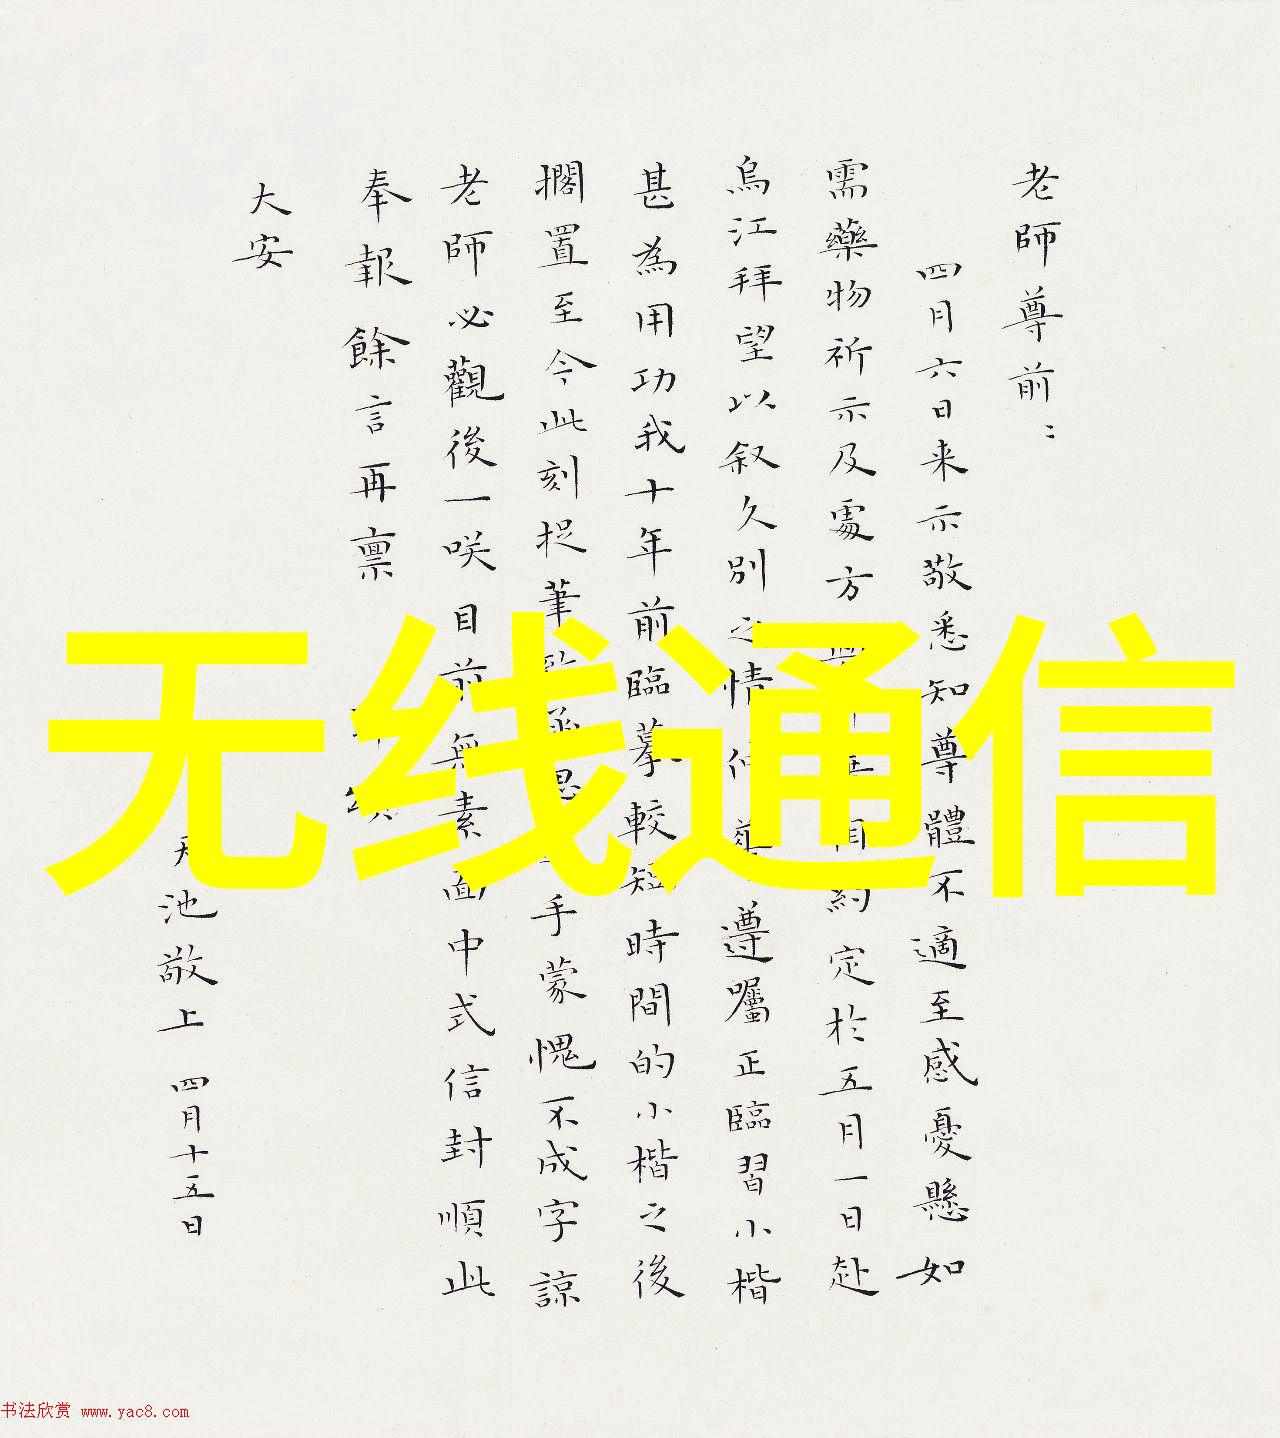 老師尊前:
四月六日来示敬悉知尊體不適至感憂懸如
需藥物祈示及處方 約定於五月一日赴
烏江拜望以叙久別之情 遵囑正臨習小楷
甚為用功我十年前臨摹較短時間的小楷之後
擱置至今此刻捉筆 手蒙愧不成字諒
老師必觀後一咲目前無素面中式信封順此
奉報餘言再禀
大安
天池敬上 四月十五日
无线通信
书法欣赏 www.yac8.com